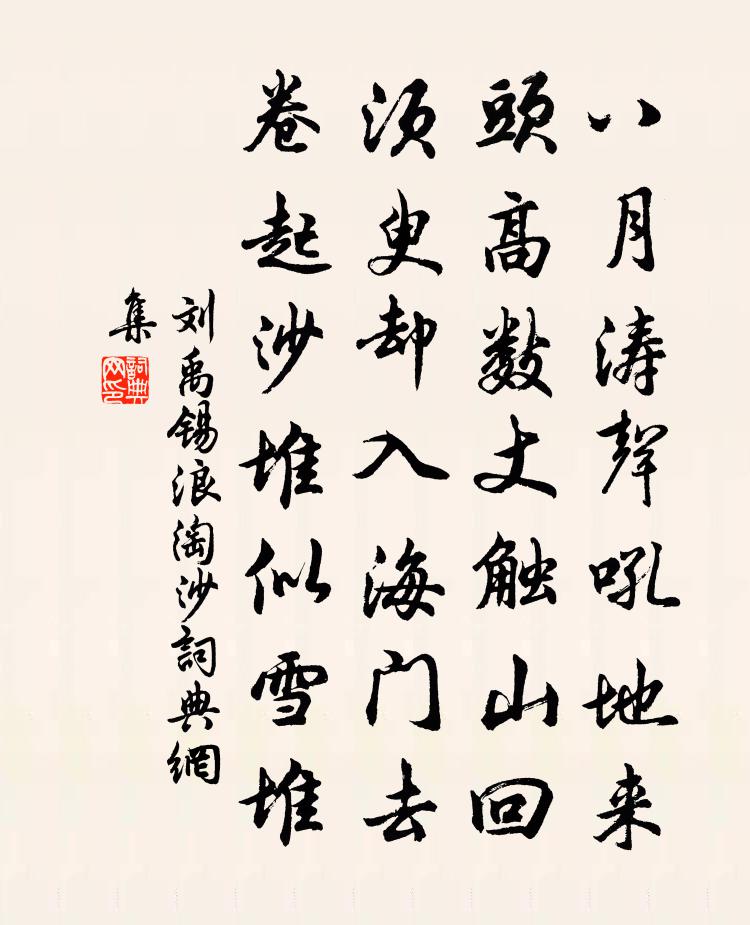 八月涛聲吼地来
頭髙数丈触山回
湏臾却入海门去
卷起沙堆似雪堆
刘禹锡浪淘沙詞典網
集
詞典
网印